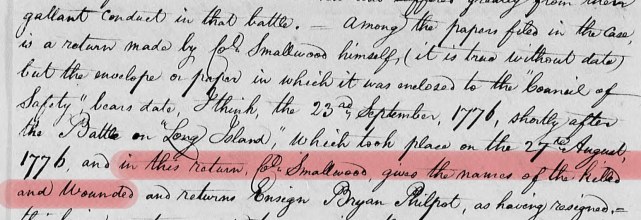 greatly from
gallant conduct in that battle. — Among the papers filed in the case,
is a return made by Col. Smallwood himself, (it is true without date)
but the envelope or paper in which it was enclosed to the "Council of
Safety", bears date, I think, the 23rd, September, 1776, shortly after
the "Battle on "Long Island", which took place on the 27th August,
1776, and in this return, Col. Smallwood, gives the names of the killed
and Wounded and returns Ensign Bryan Philpot, as having resigned,=